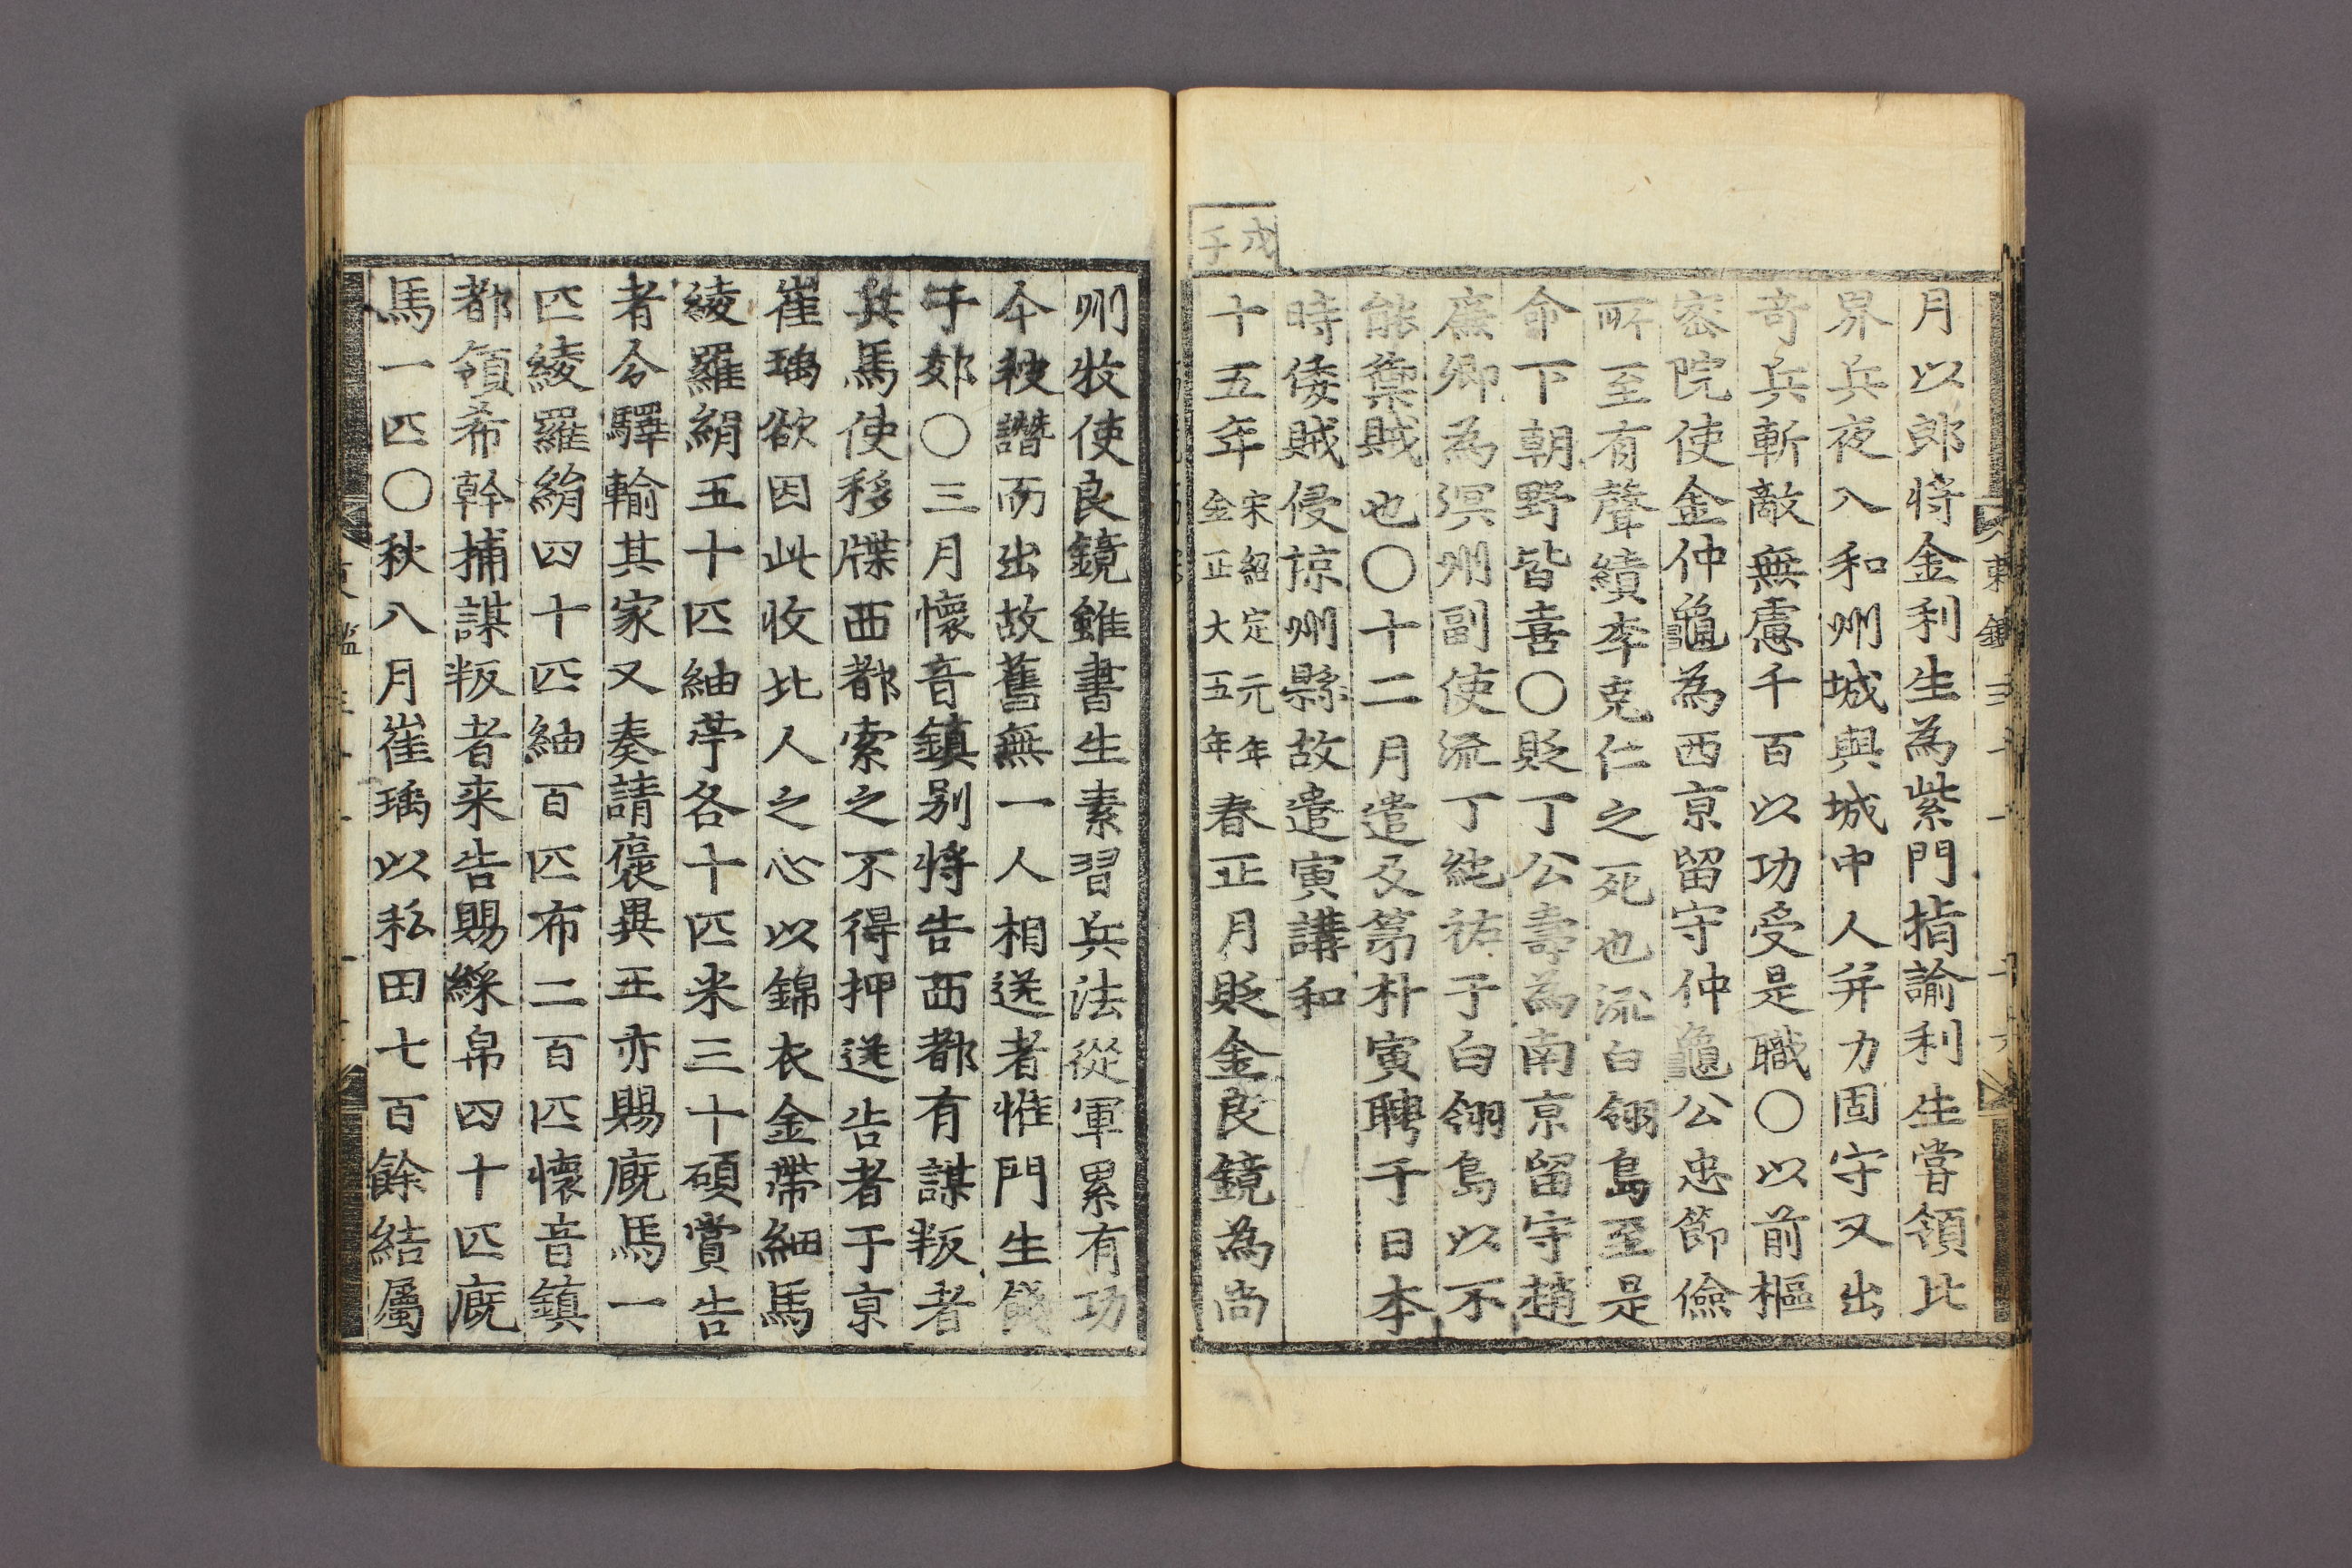 東鑑三十一
月以郎將金利生為紫門指諭利生嘗領北
界兵夜入和州城與城中人并力固守又出
奇兵斬敵無慮千百以功受是職〇以前樞
密院使金仲龜為西京留守仲龜公忠節儉
所至有聲績李克仁之死也流白翎島至是
命下朝野皆喜〇貶丁公壽為南京留守趙
廉卿為溟州副使流丁純祐于白翎島以不
能禦賊也〇十二月遣及第朴寅聘于日本
時倭賊侵諒州縣故遣寅講和
戊子
十五年宋紹定元年金正大五年春正月貶金良鏡為尚
州牧使良鏡雖書生素習兵法從軍累有功
今被譖而出故舊無一人相送者惟門生餞
于郊〇三月懷音鎮別將告西都有謀叛者
兵馬使移牒西都索之不得押送告者于京
崔瑀欲因此收北人之心以錦衣金帶細馬
綾羅絹五十匹紬苧各十匹米三十碩賞告
者令驛輸其家又奏請褒異王亦賜廐馬一
匹綾羅絹四十匹紬百匹布二百匹懷音鎮
都領希幹捕謀叛者來告賜綵帛四十匹廐
馬一匹〇秋八月崔瑀以私田七百餘結屬